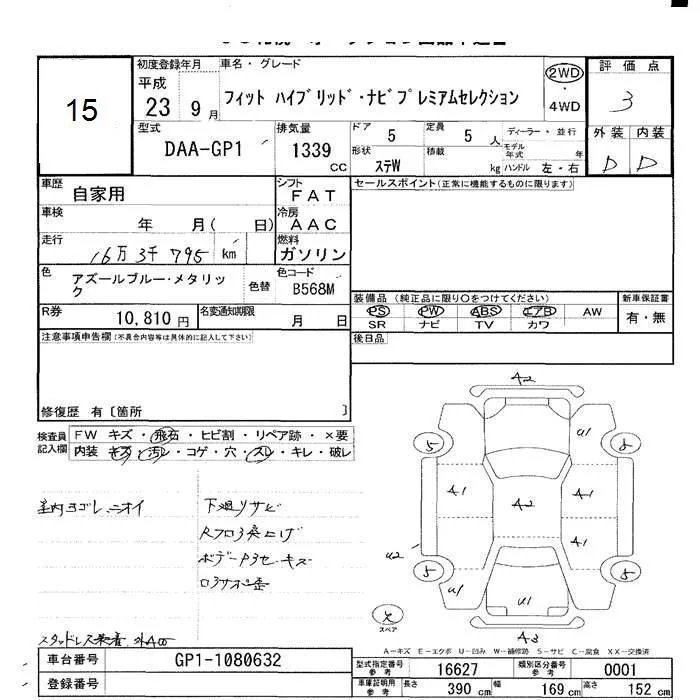 15
初度登録年月
平成
23 9 月
車名・グレード
フィット ハイブリッド・ナビプレミアムセレクション
2WD
4WD
評価点
3
外装 内装
D D
型式
DAA-GP1
排気量
1339
CC
ドア
5
形状
ステW
定員
5 人
積載
kg
ディーラー・並行
モデル年式 年
ハンドル 左・右
車歴
自家用
シフト
FAT
車検
年 月( 日)
冷房
AAC
走行
16万3千795 km
燃料
ガソリン
色
アズールブルー・メタリック
色替
色コード
B568M
R券
10,810 円
名変通知期限
月 日
セールスポイント(正常に機能するものに限ります)
装備品 (純正品に限り○をつけてください)
PS PW ABS エアB AW
SR ナビ TV カワ
新車保証書
有・無
後日品
注意事項申告欄(不具合内容等は具体的に記入して下さい)
修復歴 有〔箇所 〕
検査員
記入欄
FW キズ・飛石・ヒビ割・リペア跡・×要
内装 キズ・汚レ・コゲ・穴・スレ・キレ・破レ
室内ヨゴレニオイ
下廻リサビ
ボデーP3セキズ
スタッドレス装着
A2
U1
5
A1
A2
A1
A1
U2
5
5
U1
U1
A3
スペア
A-キズ E-エクボ U-凹み W-補修跡 S-サビ C-腐食 XX-交換済
車台番号
GP1-1080632
登録番号
型式指定番号
参考
16627
類別区分番号
参考
0001
車庫証明用
参考
長さ
390 cm
幅
169 cm
高さ
152 cm